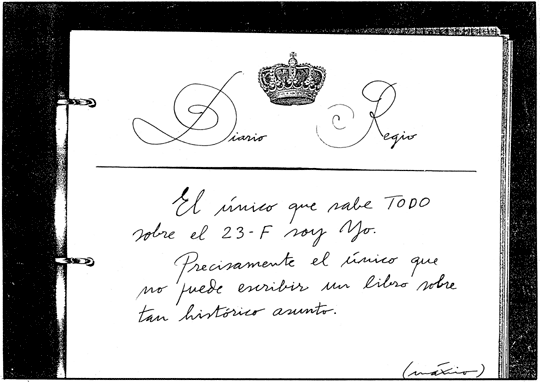 Diario Regio
El único que sabe TODO
sobre el 23-F soy Yo.
Precisamente el único que
no puede escribir un libro sobre
tan histórico asunto.
(máximo)